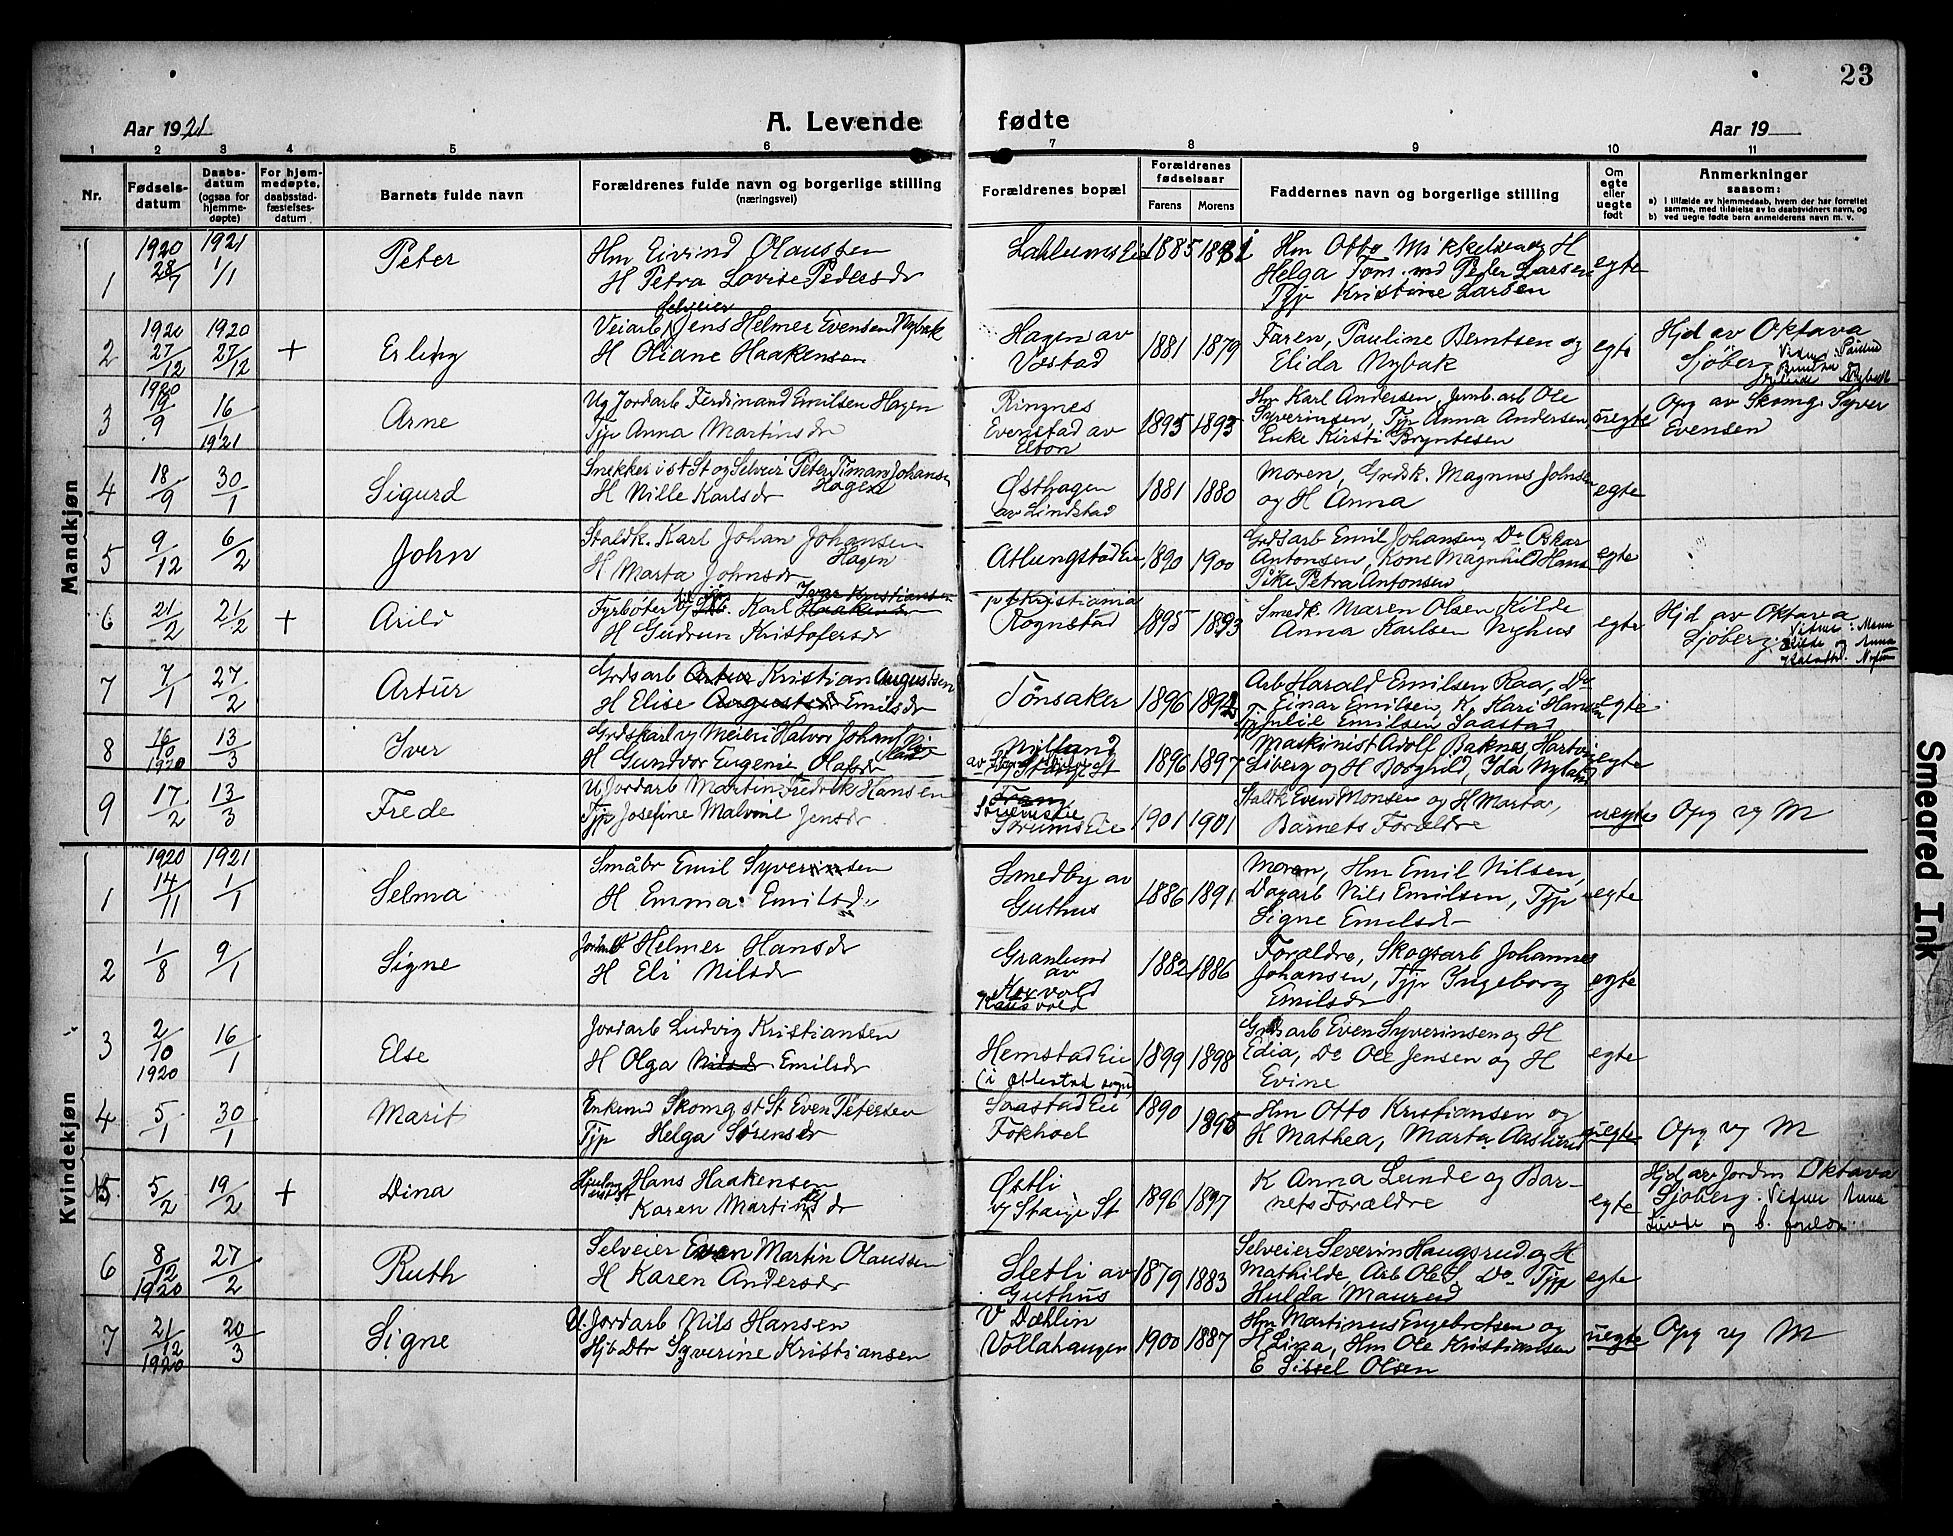 23
Aar 1921
A. Levende fødte
Aar 19
1 2 3 4 5 6 7 8 9 10 11
Nr.
Fødsels-
datum
Daabs-
datum
(ogsaa for
hjemme-
døpte)
For hjem-
medøpte,
daabsstad-
fæstelses-
datum
Barnets fulde navn
Forældrenes fulde navn og borgerlige stilling
(næringsvei)
Forældrenes bopæl
Forældrenes
fødselsaar
Farens Morens
Faddernes navn og borgerlige stilling
Om
egte
eller
uegte
født
Anmerkninger
saasom:
a) I tilfælde av hjemmedaab, hvem der har forrettet
samme, med tilføielse av to daabsvidners navn, og
b) ved uegte fødte barn anmelderens navn m. v.
Mandkjøn
1
1920
28/7
1921
1/1
Peter
Hm Eivind Olaussen
H Petra Lovise Pedersdr
1885
Hm Otto Mikkelsen og H
Helga Tom. md Peder Larsen
Tjp Kristine Larsen
egte
2
1920
27/12
1920
27/12
+
Erling
Selveier
Veiarb Jens Helmer Evensen Nybak
H Oliane Haakensen
Hagen av
Vestad
1881 1879
Faren, Pauline Berntsen og
Elida Nybak
egte
Hjd av Oktava
Sjöberg
3
1920
19/9
16/1
1921
Arne
Ug Jordarb Ferdinand Emilsen Hagen
Tjp Anna Martinsdr
Ringnes
Evenstad av
1895 1895
Hm Karl Andersen, Jernb.arb Ole
Syverinsen, Tjp Anna Andersen,
Enke Kirsti Bryntesen
uegte
Opg av Skomg. Syver
Evensen
4
18/9
30/1
Sigurd
Snekker i st St og Selveier Peter Timan Johansen
Hagen
H Nille Karlsdr
Østhagen
av Lindstad
1881 1880
Moren, Grdsk. Magnus Johnsen
og H Anna
egte
5
9/12
6/2
John
Staldk. Karl Johan Johansen
Hagen
H Marta Johnsdr
Atlungstad Eie
1890 1900
Grdsarb Emil Johansen, Do Oskar
Antonsen, Kone Magnhild Hans
Pike Petra Antonsen
egte
6
21/2
21/2
+
Arild
Ivar Kristiansen
Fyrbøter Karl Haakensen
H Gudrun Kristofersdr
pt Kristiania
Rognstad
1895 1893
Smedk. Maren Olsen Kilde
Anna Karlsen Nyhus
egte
Hjd av Oktava
Sjöberg
7
7/1
27/2
Artur
Grdsarb Artur Kristian Augustsen
H Elise Augustsdr Emilsdr
Tönsaker
1896
Arb Harald Emilsen Raa, Do
Einar Emilsen, K. Kari Hansen
Tjp Julie Emilsen Saastad
egte
8
16/10
1920
13/3
Iver
H Gundvor Eugenie Olafsdr
1896 1897
Maskinist Adolf Baknes, Hartvi
Liberg og H Borghild, Ida Nyland
egte
9
17/2
13/3
Frede
U Jordarb Martin Fredrik Hansen
Tjp Josefine Malvine Jensdr
Sörums Eie
1901 1901
Staldk Even Monsen og H Marta,
Barnets Forældre
uegte
Opg vg M
Kvindekjøn
1
1920
14/11
1921
1/1
Selma
Småbr Emil Syverinsen
H Emma Emilsdr
Smedby av
Guthus
1886 1891
Moren, Hm Emil Nilsen,
Dagarb Nils Emilsen, Tjp
Signe Emilsdr
egte
2
1/8
9/1
Signe
Helmer Hansdr
H Eli Nilsdr
Granlund
av
Korvold
1882 1886
Forældre, Skogsarb Johannes
Johansen, Tjp Ingeborg
Emilsdr
egte
3
2/10
1920
16/1
Else
Jordarb Ludvig Kristiansen
H Olga Nilsdr Emilsdr
Hemstad Eie
(i Ottestad sogn)
1899 1898
Grdsarb Even Syverinsen og H
Edia, Do Ole Jensen og H
Evine
egte
4
5/1
30/1
Marit
Enkemd Skomg st St Even Petersen
Tjp Helga Sörensdr
Saastad Eie
Fokhoel
1890 1895
Hm Otto Kristiansen og
H Mathea, Marta Aaslierud
uegte
Opg vg M
5
5/2
19/2
+
Dina
Hans Haakensen
Karen Martinsdr
Østli
v/ Stange St
1896 1897
K Anna Lunde og Bar-
nets Forældre
egte
Hjd av Jordm Oktava
Sjöberg. Vidner Anna
Lunde og b. foreldre
6
8/12
1920
27/2
Ruth
Selveier Even Martin Olaussen
H Karen Andersdr
Sletli av
Guthus
1879 1883
Selveier Severin Haugsrud og H
Mathilde, Arb Ole S, Do Tjp
Hulda Maurud
egte
7
21/12
1920
20/3
Signe
U. Jordarb Nils Hansen
Hjb Dtr Syverine Kristiansen
V Dæhlin
Vollahaugen
1900 1887
Hm Martinus Engebretsen og
H Lina, Hm Ole Kristiansen
E Sissel Olsen
uegte
Opg vg M
Smeared Ink